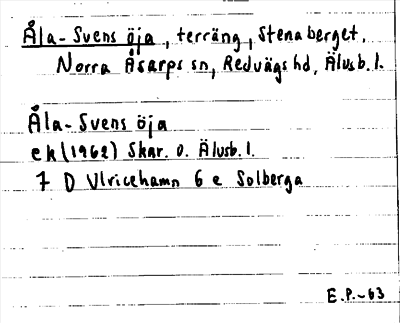 Åla-Svens öja, terräng, Stenaberget,
Norra Åsarps sn, Redvägs hd, Älvsb. l.
Åla-Svens öja
ek (1962) Skar. o. Älvsb. l.
7 D Ulricehamn 6 e Solberga
E.P.-63